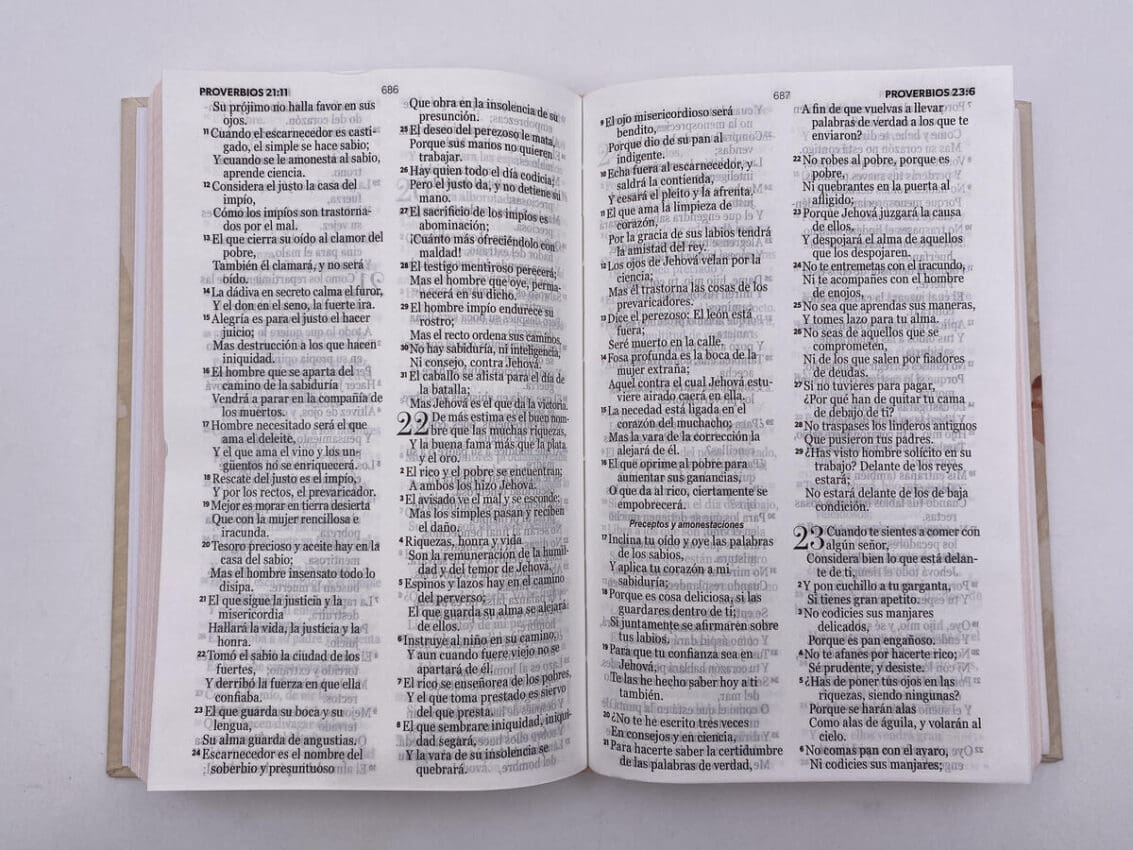 PROVERBIOS 21:11
686
Su prójimo no halla favor en sus
ojos.
11 Cuando el escarnecedor es casti-
gado, el simple se hace sabio;
Y cuando se le amonesta al sabio,
aprende ciencia.
12 Considera el justo la casa del
impío,
Cómo los impíos son trastorna-
dos por el mal.
13 El que cierra su oído al clamor del
pobre,
También él clamará, y no será
oído.
14 La dádiva en secreto calma el furor,
Y el don en el seno, la fuerte ira.
15 Alegría es para el justo el hacer
juicio;
Mas destrucción a los que hacen
iniquidad.
16 El hombre que se aparta del
camino de la sabiduría
Vendrá a parar en la compañía de
los muertos.
17 Hombre necesitado será el que
ama el deleite,
Y el que ama el vino y los un-
güentos no se enriquecerá.
18 Rescate del justo es el impío,
Y por los rectos, el prevaricador.
19 Mejor es morar en tierra desierta
Que con la mujer rencillosa e
iracunda.
20 Tesoro precioso y aceite hay en la
casa del sabio;
Mas el hombre insensato todo lo
disipa.
21 El que sigue la justicia y la
misericordia
Hallará la vida, la justicia y la
honra.
22 Tomó el sabio la ciudad de los
fuertes,
Y derribó la fuerza en que ella
confiaba.
23 El que guarda su boca y su
lengua,
Su alma guarda de angustias.
24 Escarnecedor es el nombre del
soberbio y presuntuoso
Que obra en la insolencia de su
presunción.
25 El deseo del perezoso le mata,
Porque sus manos no quieren
trabajar.
26 Hay quien todo el día codicia;
Pero el justo da, y no detiene su
mano.
27 El sacrificio de los impíos es
abominación;
¡Cuánto más ofreciéndolo con
maldad!
28 El testigo mentiroso perecerá;
Mas el hombre que oye, perma-
necerá en su dicho.
29 El hombre impío endurece su
rostro;
Mas el recto ordena sus caminos.
30 No hay sabiduría, ni inteligencia,
Ni consejo, contra Jehová.
31 El caballo se alista para el día de
la batalla;
Mas Jehová es el que da la victoria.
22 De más estima es el buen nom-
bre que las muchas riquezas,
Y la buena fama más que la plata
y el oro.
2 El rico y el pobre se encuentran;
A ambos los hizo Jehová.
3 El avisado ve el mal y se esconde;
Mas los simples pasan y reciben
el daño.
4 Riquezas, honra y vida
Son la remuneración de la humil-
dad y del temor de Jehová.
5 Espinos y lazos hay en el camino
del perverso;
El que guarda su alma se alejará
de ellos.
6 Instruye al niño en su camino,
Y aun cuando fuere viejo no se
apartará de él.
7 El rico se enseñorea de los pobres,
Y el que toma prestado es siervo
del que presta.
8 El que sembrare iniquidad, iniqui-
dad segará,
Y la vara de su insolencia se
quebrará.
687
PROVERBIOS 23:6
9 El ojo misericordioso será
bendito,
Porque dio de su pan al
indigente.
10 Echa fuera al escarnecedor, y
saldrá la contienda,
Y cesará el pleito y la afrenta.
11 El que ama la limpieza de
corazón,
Por la gracia de sus labios tendrá
la amistad del rey.
12 Los ojos de Jehová velan por la
ciencia;
Mas él trastorna las cosas de los
prevaricadores.
13 Dice el perezoso: El león está
fuera;
Seré muerto en la calle.
14 Fosa profunda es la boca de la
mujer extraña;
Aquel contra el cual Jehová estu-
viere airado caerá en ella.
15 La necedad está ligada en el
corazón del muchacho;
Mas la vara de la corrección la
alejará de él.
16 El que oprime al pobre para
aumentar sus ganancias,
O que da al rico, ciertamente se
empobrecerá.
Preceptos y amonestaciones
17 Inclina tu oído y oye las palabras
de los sabios,
Y aplica tu corazón a mi
sabiduría;
18 Porque es cosa deliciosa, si las
guardares dentro de ti;
Si juntamente se afirmaren sobre
tus labios.
19 Para que tu confianza sea en
Jehová,
Te las he hecho saber hoy a ti
también.
20 ¿No te he escrito tres veces
En consejos y en ciencia,
21 Para hacerte saber la certidumbre
de las palabras de verdad,
A fin de que vuelvas a llevar
palabras de verdad a los que te
enviaron?
22 No robes al pobre, porque es
pobre,
Ni quebrantes en la puerta al
afligido;
23 Porque Jehová juzgará la causa
de ellos,
Y despojará el alma de aquellos
que los despojaren.
24 No te entremetas con el iracundo,
Ni te acompañes con el hombre
de enojos,
25 No sea que aprendas sus maneras,
Y tomes lazo para tu alma.
26 No seas de aquellos que se
comprometen,
Ni de los que salen por fiadores
de deudas.
27 Si no tuvieres para pagar,
¿Por qué han de quitar tu cama
de debajo de ti?
28 No traspases los linderos antignos
Que pusieron tus padres.
29 ¿Has visto hombre solícito en su
trabajo? Delante de los reyes
estará;
No estará delante de los de baja
condición.
23 Cuando te sientes a comer con
algún señor,
Considera bien lo que está delan-
te de ti,
2 Y pon cuchillo a tu garganta,
Si tienes gran apetito.
3 No codicies sus manjares
delicados,
Porque es pan engañoso.
4 No te afanes por hacerte rico;
Sé prudente, y desiste.
5 ¿Has de poner tus ojos en las
riquezas, siendo ningunas?
Porque se harán alas
Como alas de águila, y volarán al
cielo.
6 No comas pan con el avaro,
Ni codicies sus manjares;